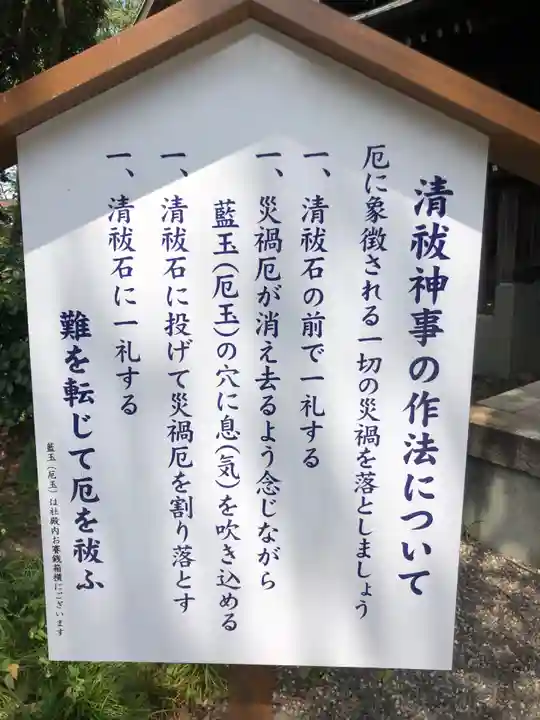 清祓神事の作法について
厄に象徴される一切の災禍を落としましょう
一、清祓石の前で一礼する
一、災禍厄が消え去るよう念じながら
藍玉(厄玉)の穴に息(気)を吹き込める
一、清祓石に投げて災禍厄を割り落とす
一、清祓石に一礼する
難を転じて厄を祓ふ
藍玉(厄玉)は社殿内お賽銭箱横にございます